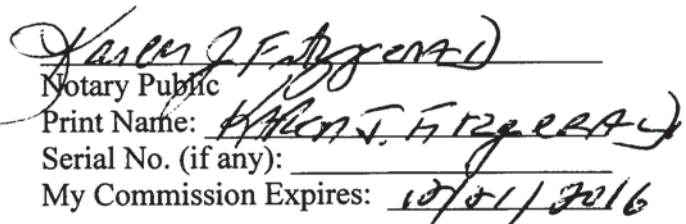 Karen J Fitzgerald
Notary Public
Print Name: Karen J. Fitzgerald
Serial No. (if any):
My Commission Expires: 12/01/2016